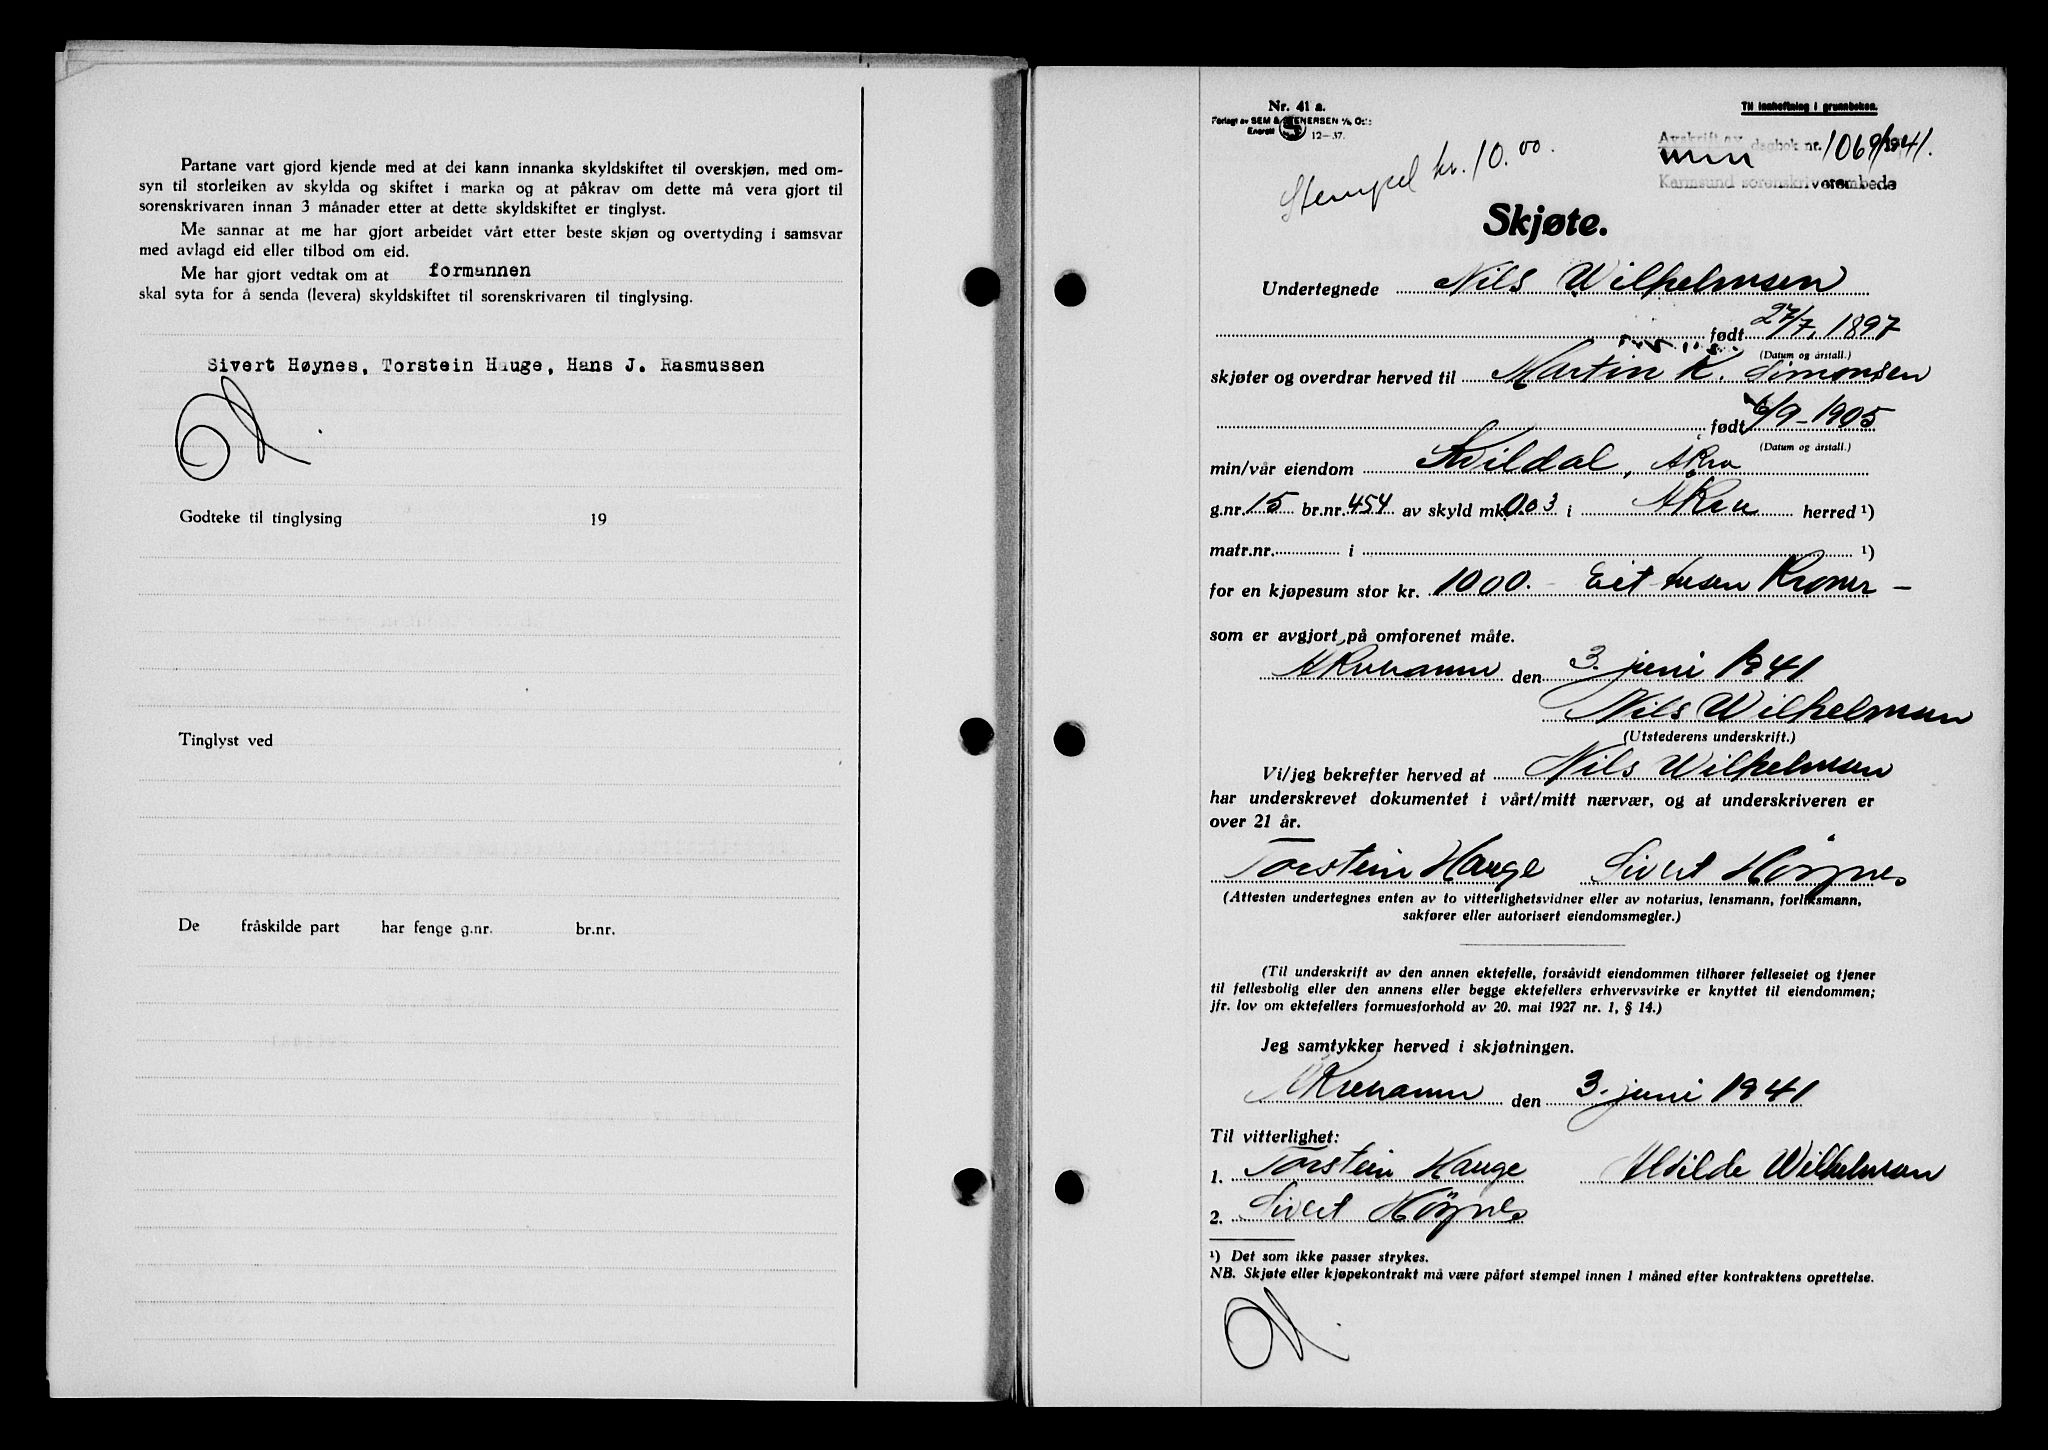 Partane vart gjord kjende med at dei kann innanka skyldskiftet til overskjøn, med om-
syn til storleiken av skylda og skiftet i marka og at påkrav om dette må vera gjort til
sorenskrivaren innan 3 månader etter at dette skyldskiftet er tinglyst.
Me sannar at me har gjort arbeidet vårt etter beste skjøn og overtyding i samsvar
med avlagd eid eller tilbod om eid.
Me har gjort vedtak om at formannen
skal syta for å senda (levera) skyldskiftet til sorenskrivaren til tinglysing.
Sivert Høynes, Torstein Hauge, Hans J. Rasmussen
Godteke til tinglysing 19
Tinglyst ved
De fråskilde part har fenge g.nr. br.nr.
Nr. 41 a.
Forlagt av SEM & STENERSEN A/S, Oslo
Enerett 12—37.
Til innheftning i grunnboken.
Avskrift av dagbok nr. 1069/1941.
Karmsund sorenskriverembede
Stempel kr. 10.00.
Skjøte.
Undertegnede Nils Wilhelmsen
født 27/7, 1897
(Datum og årstall.)
skjøter og overdrar herved til Martin K. Simonsen
født 6/9-1905
(Datum og årstall.)
min/vår eiendom Kvildal, Åkra
g.nr. 15 br.nr. 454 av skyld mk. 0.03 i Åkra herred ¹)
matr.nr. i ¹)
for en kjøpesum stor kr. 1000.- Eit tusen Kroner -
som er avgjort på omforenet måte.
Åkrehamn den 3. juni 1941
Nils Wilhelmsen
(Utstederens underskrift.)
Vi/jeg bekrefter herved at Nils Wilhelmsen
har underskrevet dokumentet i vårt/mitt nærvær, og at underskriveren er
over 21 år.
Torstein Hauge Sivert Høynes
(Attesten undertegnes enten av to vitterlighetsvidner eller av notarius, lensmann, forliksmann,
sakfører eller autorisert eiendomsmegler.)
(Til underskrift av den annen ektefelle, forsåvidt eiendommen tilhører felleseiet og tjener
til fellesbolig eller den annens eller begge ektefellers erhvervsvirke er knyttet til eiendommen;
jfr. lov om ektefellers formuesforhold av 20. mai 1927 nr. 1, § 14.)
Jeg samtykker herved i skjøtningen.
Åkrehamn den 3. juni 1941
Til vitterlighet:
1. Torstein Hauge Alvilde Wilhelmsen
2. Sivert Høynes
¹) Det som ikke passer strykes.
NB. Skjøte eller kjøpekontrakt må være påført stempel innen 1 måned efter kontraktens oprettelse.